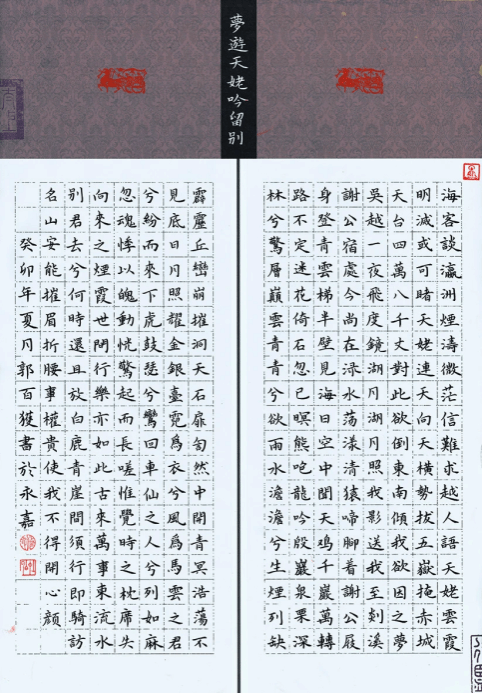 夢遊天姥吟留別
海客談瀛洲煙濤微茫信難求越人語天姥雲霞
明滅或可睹天姥連天向天橫勢拔五嶽掩赤城
天台四萬八千丈對此欲倒東南傾我欲因之夢
吳越一夜飛度鏡湖月湖月照我影送我至剡溪
謝公宿處今尚在淥水蕩漾清猿啼腳着謝公屐
身登青雲梯半壁見海日空中聞天鷄千巖萬轉
路不定迷花倚石忽已暝熊咆龍吟殷巖泉栗深
林兮驚層巔雲青青兮欲雨水澹澹兮生煙列缺
霹靂丘巒崩摧洞天石扉訇然中開青冥浩蕩不
見底日月照耀金銀臺霓爲衣兮風爲馬雲之君
兮紛而來下虎鼓瑟兮鸞回車仙之人兮列如麻
忽魂悸以魄動恍驚起而長嗟惟覺時之枕席失
向來之煙霞世間行樂亦如此古來萬事東流水
別君去兮何時還且放白鹿青崖間須行即騎訪
名山安能摧眉折腰事權貴使我不得開心顏
癸卯年夏月郭百獲書於永嘉